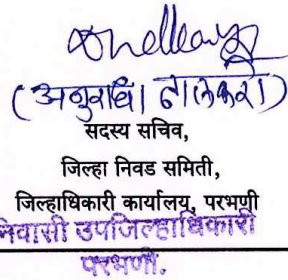 (अनुराधा ढालकरी)
सदस्य सचिव,
जिल्हा निवड समिती,
जिल्हाधिकारी कार्यालय, परभणी
निवासी उपजिल्हाधिकारी
परभणी.